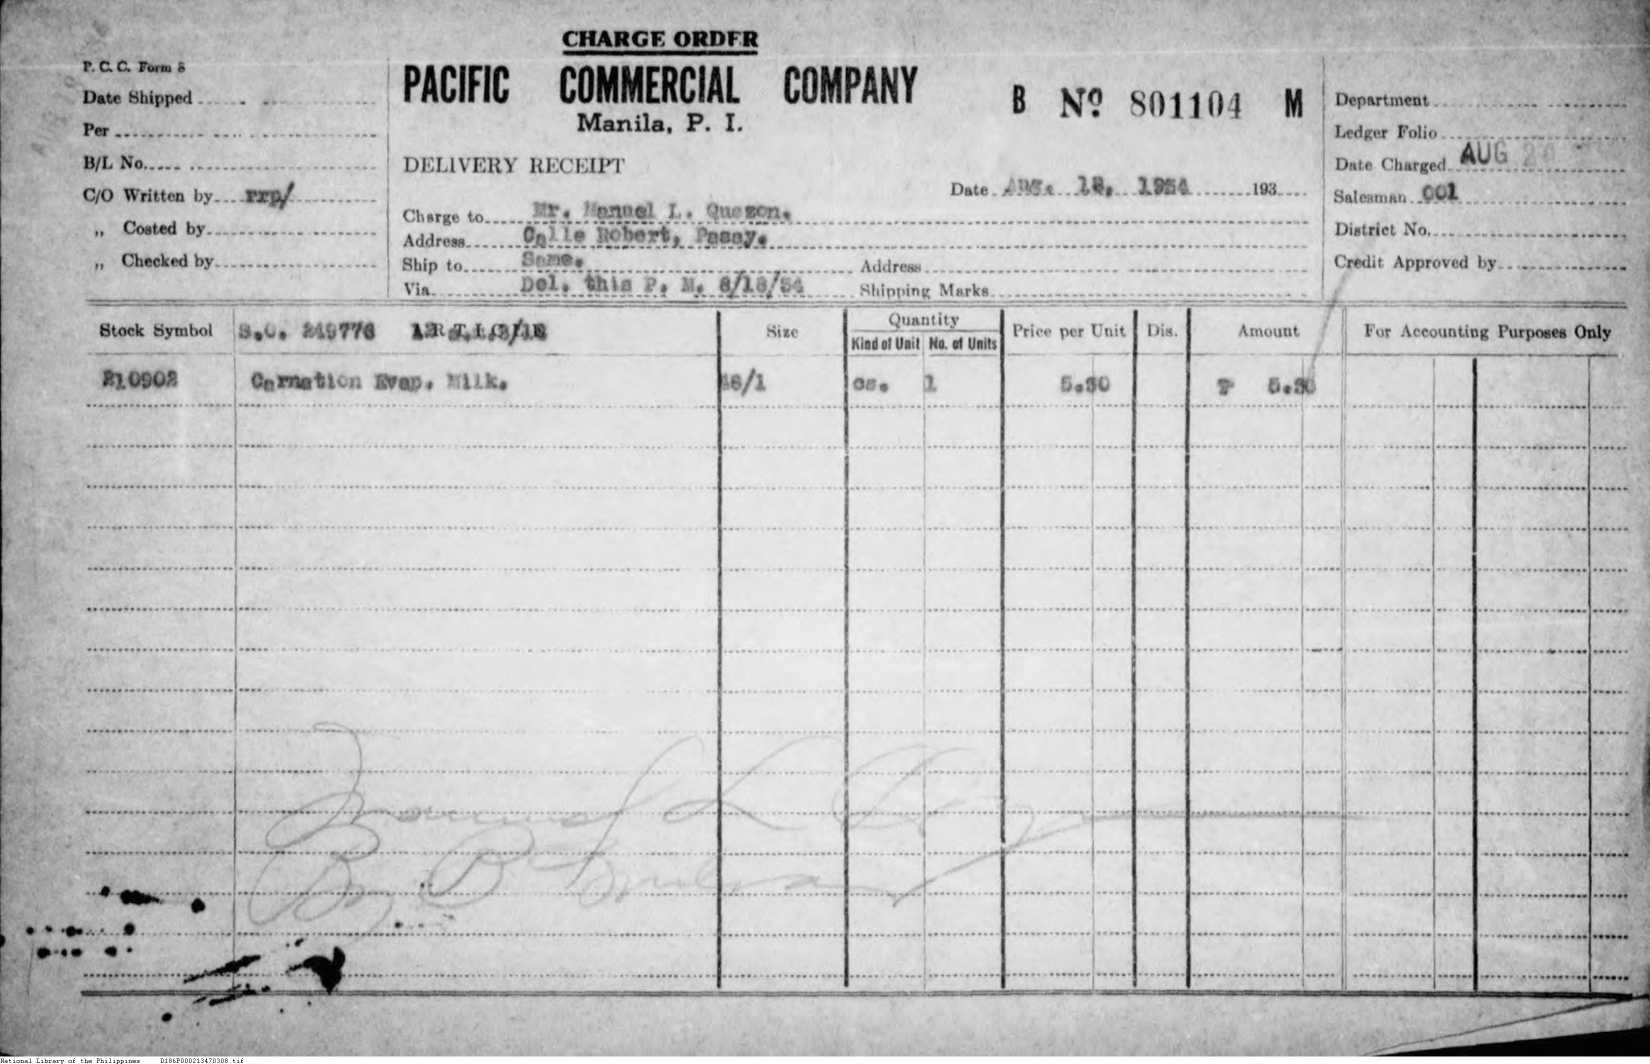 CHARGE ORDER
P. C. C. Form 8
PACIFIC COMMERCIAL COMPANY
Manila, P. I.
B Nº 801104 M
Date Shipped
Per
B/L No.
C/O Written by rrp/
„ Costed by
„ Checked by
DELIVERY RECEIPT
Date Aug. 18, 1934 193
Charge to Mr. Manuel L. Quezon.
Address Calle Robert, Pasay.
Ship to Same. Address
Via Del. this P. M. 8/18/34 Shipping Marks
Department
Ledger Folio
Date Charged AUG 20
Salesman 001
District No.
Credit Approved by
Stock Symbol S.O. 249776 Size Quantity Price per Unit Dis. Amount For Accounting Purposes Only
Kind of Unit No. of Units
210902 Carnation Evap. Milk. 48/1 cs. 1 5.30 ₱ 5.30
Manuel L Quezon
By B
National Library of the Philippines D186P000213470308.tif